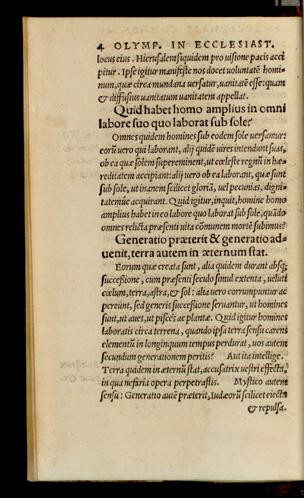 4 OLYMP. IN ECCLESIAST.
locus eius. Hierusalem siquidem pro uisione pacis acci
pitur. Ipse igitur manifeste nos docet uoluntatē homi-
num, quæ circa mundana uersatur, uanitatē esse: quam
& diffusius uanitatum uanitatem appellat.
Quid habet homo amplius in omni
labore suo quo laborat sub sole?
Omnes quidem homines sub eodem sole uersamur:
eorū uero qui laborant, alij quidē uires intendunt suas,
ob ea quæ solem supereminent, ut cœleste regnū in hæ-
reditatem accipiant: alij uero ob ea laborant, quæ sunt
sub sole, ut inanem scilicet gloriā, uel pecunias, digni-
tatemúe acquirant. Quid igitur, inquit, homine homo
amplius habet in eo labore quo laborat sub sole, quādo
omnes relicta præsenti uita cōmunem mortē subimus?
Generatio præterit & generatio ad-
uenit, terra autem in æternum stat.
Eorum quæ creata sunt, alia quidem durant absq;
successione, cum præsenti seculo simul extenta, ueluti
cœlum, terra, astra, & sol: alia uero corrumpuntur ac
pereunt, sed generis successione seruantur, ut homines
sunt, ut aues, ut pisces ac plantæ. Quid igitur homines
laboratis circa terrena, quando ipsa terra sensu carens
elementū in longinquum tempus perdurat, uos autem
secundum generationem peritis? Aut ita intellige.
Terra quidem in æternū stat, accusatrix uestri effecta,
in qua nefaria opera perpetrastis. Mystico autem
sensu: Generatio autē præterit, Iudæorū scilicet eiecta
& repulsa.